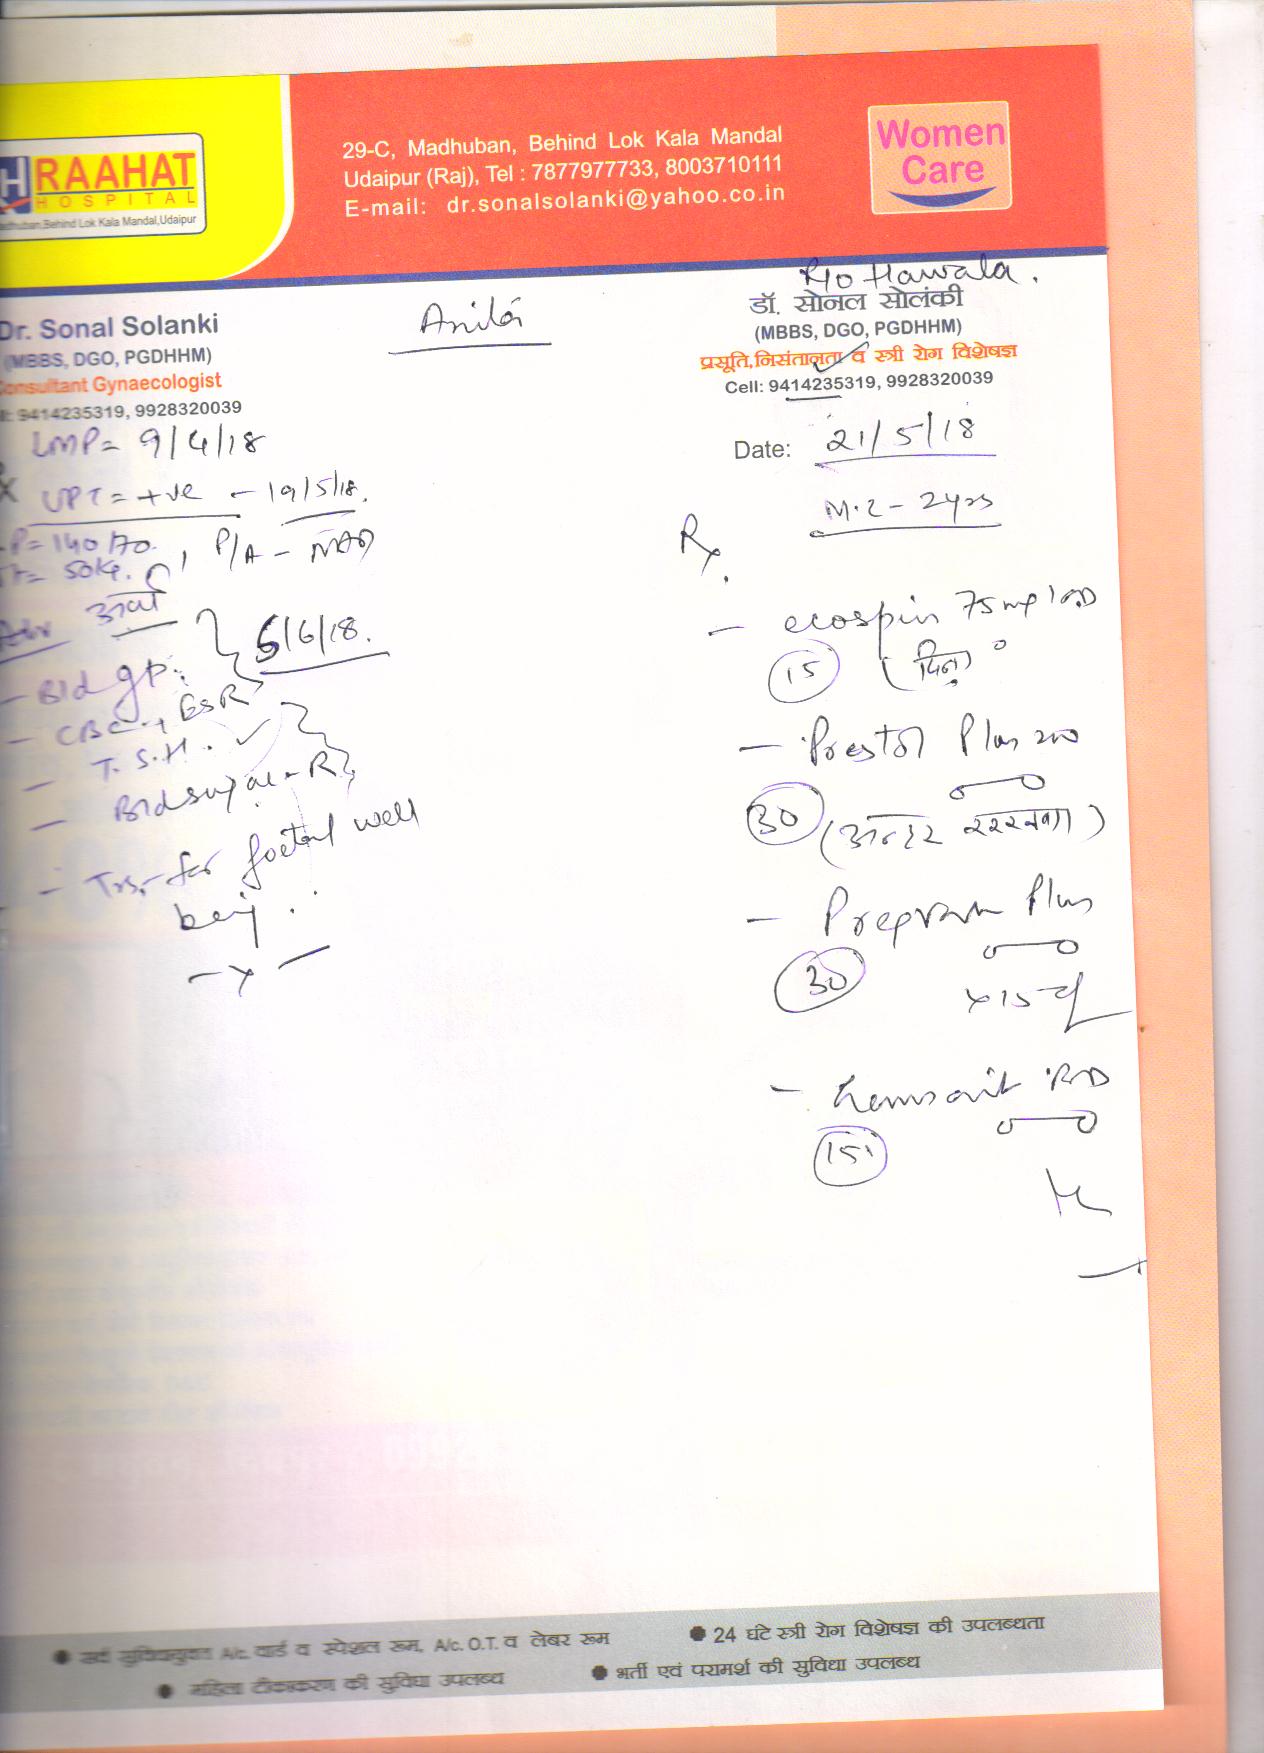 RAAHAT
HOSPITAL
Madhuban,Behind Lok Kala Mandal,Udaipur
29-C, Madhuban, Behind Lok Kala Mandal
Udaipur (Raj), Tel : 7877977733, 8003710111
E-mail: dr.sonalsolanki@yahoo.co.in
Women
Care
R/o Hawala.
Dr. Sonal Solanki
(MBBS, DGO, PGDHHM)
Consultant Gynaecologist
9414235319, 9928320039
Anita
डॉ. सोनल सोलंकी
(MBBS, DGO, PGDHHM)
प्रसूति,निसंतानता व स्त्री रोग विशेषज्ञ
Cell: 9414235319, 9928320039
Date: 21/5/18
LMP= 9/4/18
UPT = +ve - 19/5/18.
P= 140/70. , P/A - NAD
= 50kg.
Adv
- Bld gp.
- CBC, ESR
5/6/18.
- T.S.H.
- Bld sugar - R
- Tvs - for foetal well
being.
- x -
M.L - 2yrs
Rx.
- ecospin 75mg 1 OD
15
- Prestol Plus 200
30 (अन्दर रखना)
- Plus
30
x 15 d
- RD
15
सर्व सुविधायुक्त A/c. वार्ड व स्पेशल रूम, A/c. O.T. व लेबर रूम
24 घंटे स्त्री रोग विशेषज्ञ की उपलब्धता
महिला टीकाकरण की सुविधा उपलब्ध
भर्ती एवं परामर्श की सुविधा उपलब्ध